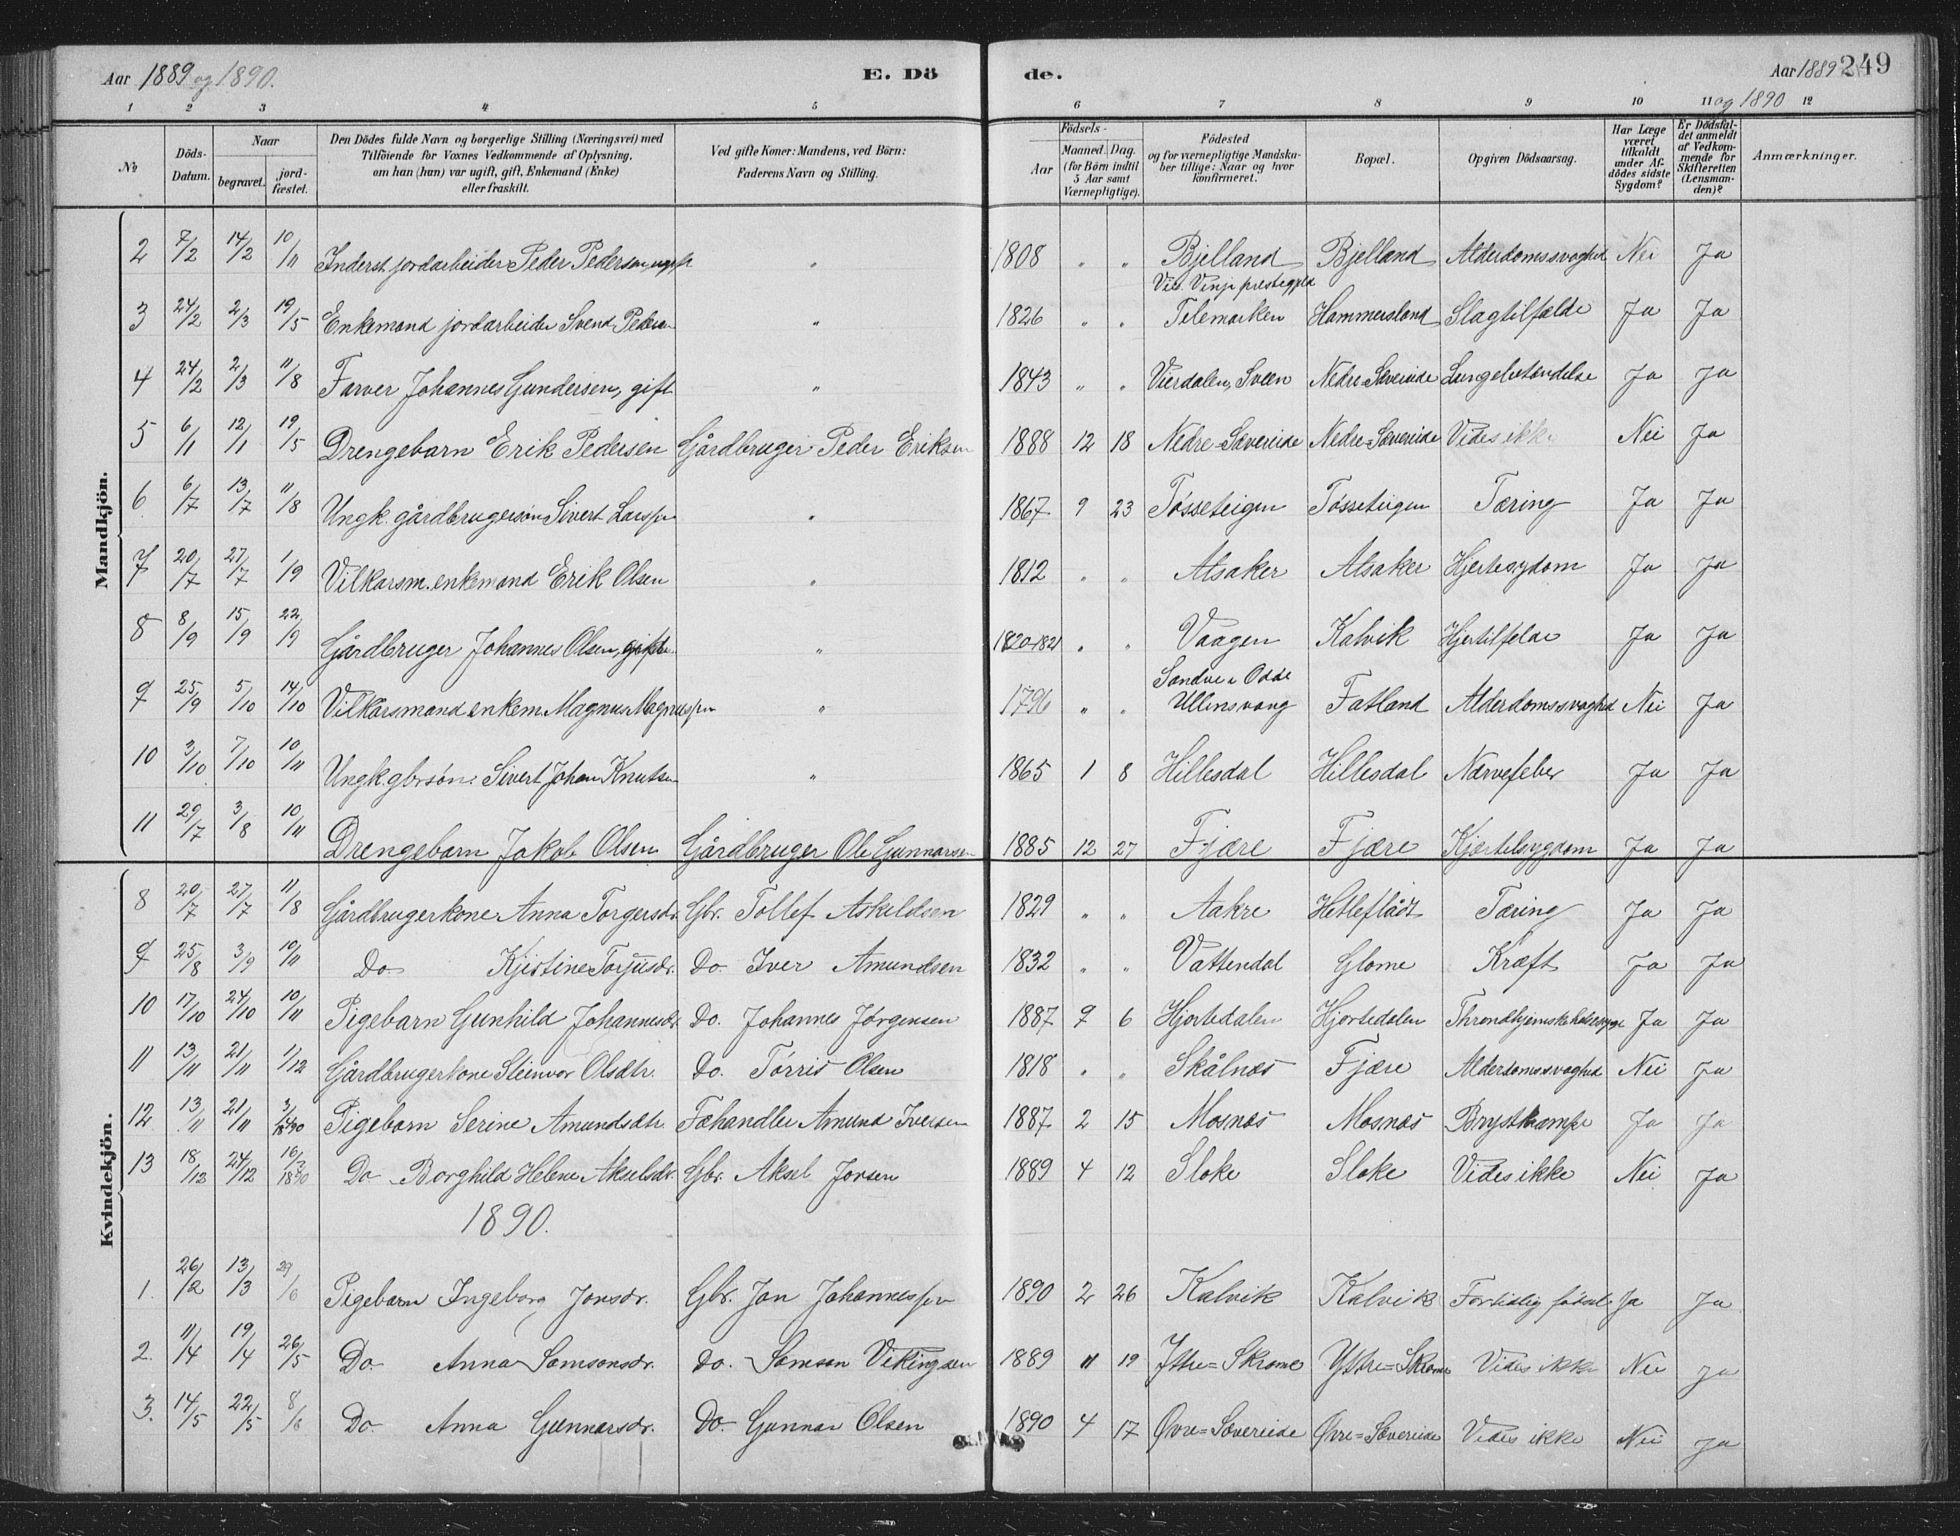 Aar 1889 og 1890.
E. Dö
de.
Aar 1889 249
og 1890
1 2 3 4 5 6 7 8 9 10 11 12
No
Döds-Datum.
Naar
begravet.
jord-fæstet.
Den Dödes fulde Navn og borgerlige Stilling (Næringsvei) med
Tilföiende for Voxnes Vedkommende af Oplysning,
om han (hun) var ugift, gift, Enkemand (Enke)
eller fraskilt.
Ved gifte Koner: Mandens, ved Börn:
Faderens Navn og Stilling.
Födsels-
Aar
Maaned. Dag.
(for Börn indtil
5 Aar samt
Værnepligtige).
Födested
og for værnepligtige Mandska-
ber tillige: Naar og hvor
konfirmeret.
Bopæl.
Opgiven Dödsaarsag.
Har Læge
været
tilkaldt
under Af-
dödes sidste
Sygdom?
Er Dödsfal-
det anmeldt
af Vedkom-
mende for
Skifteretten
(Lensman-
den)?
Anmærkninger.
Mandkjön.
2 7/2 14/2 10/11 Inderst jordarbeider Peder Pedersen ugift " 1808 " " Bjelland Bjelland Alderdomssvaghed Nei Ja
Vinje prestegjeld
3 24/2 2/3 19/5 Enkemand jordarbeider Svend Pedersen " 1826 " " Telemarken Hammersland Slagtilfælde Ja Ja
4 24/2 2/3 11/8 Farver Johannes Gundersen, gift " 1843 " " Vierdalen, Sveen Nedre=Sævereide Lungebetændelse Ja Ja
5 6/1 12/1 19/5 Drengebarn Erik Pedersen Gårdbruger Peder Eriksen 1888 12 18 Nedre=Sævereide Nedre=Sævereide Vides ikke Nei Ja
6 6/7 13/7 11/8 Ungk. gårdbrugersøn Sivert Larssen " 1867 9 23 Tøsseteigen Tøsseteigen Tæring Ja Ja
7 20/7 27/7 1/9 Vilkårsm. enkemand Erik Olsen " 1812 " " Alsaker Alsaker Hjertesygdom Ja Ja
8 8/9 15/9 22/9 Gårdbruger Johannes Olsen, gift " 1820-1821 " " Vaagen Kalvik Hjertilfelde Ja Ja
Sandve i Odde
9 25/9 5/10 14/10 Vilkårsmand enkem. Magnus Magnussen " 1796 " " Ullensvang Fatland Alderdomssvaghed Nei Ja
10 3/10 7/10 10/11 Ungk. gbrsøn: Sivert Johan Knutsen " 1865 1 8 Hillesdal Hillesdal Nærvefeber Ja Ja
11 29/17 3/8 10/11 Drengebarn Jakob Olsen Gårdbruger Ole Gunnarsen 1885 12 27 Fjære Fjære Kjertelsygdom Ja Ja
Kvindekjön.
8 20/7 27/7 11/8 Gårdbrugerkone Anna Torgersdr. Gbr. Tollef Askildsen 1829 " " Aakre Hetleflådt Tæring Ja Ja
9 25/8 3/9 10/11 Do Kjistine Torjusdr. Do Iver Amundsen 1832 " " Vattendal Glome Kræft Ja Ja
10 17/10 24/10 10/11 Pigebarn Gunhild Johannesdr. Do. Johannes Jørgensen 1887 9 6 Hjortedalen Hjortedalen Throndhjemske halssyge Ja Ja
11 13/11 21/11 1/12 Gårdbrugerkone Steinvor Olsdtr. Do. Tørris Olsen 1818 " " Skålnæs Fjære Alderdomssvaghed Nei Ja
12 13/11 21/11 3/ 1890 Pigebarn Serine Amundsdtr. Fæhandler Amund Iversen 1887 2 15 Mosnæs Mosnæs Brystkrampe Ja Ja
13 18/12 24/12 16/3 1890 Do Borghild Helene Akselsdr. Gbr. Aksel Jorsen 1889 4 12 Sloke Sloke Vides ikke Nei Ja
1890.
1. 26/2 13/3 29/6 Pigebarn Ingeborg Jonsdr. Gbr. Jon Johannessen 1890 2 26 Kalvik Kalvik Fortidlig fødsel Ja Ja
2. 11/4 19/4 26/5 Do Anna Samsonsdr. Do. Samson Vikingsen 1889 11 19 Ystre=Skromme Ystre=Skromme Vides ikke Nei Ja
3. 14/5 22/5 8/6 Do Anna Gunnarsdr. Do Gunnar Olsen 1890 4 17 Øvre=Sævereide Øvre=Sævereide Vides ikke Nei Ja